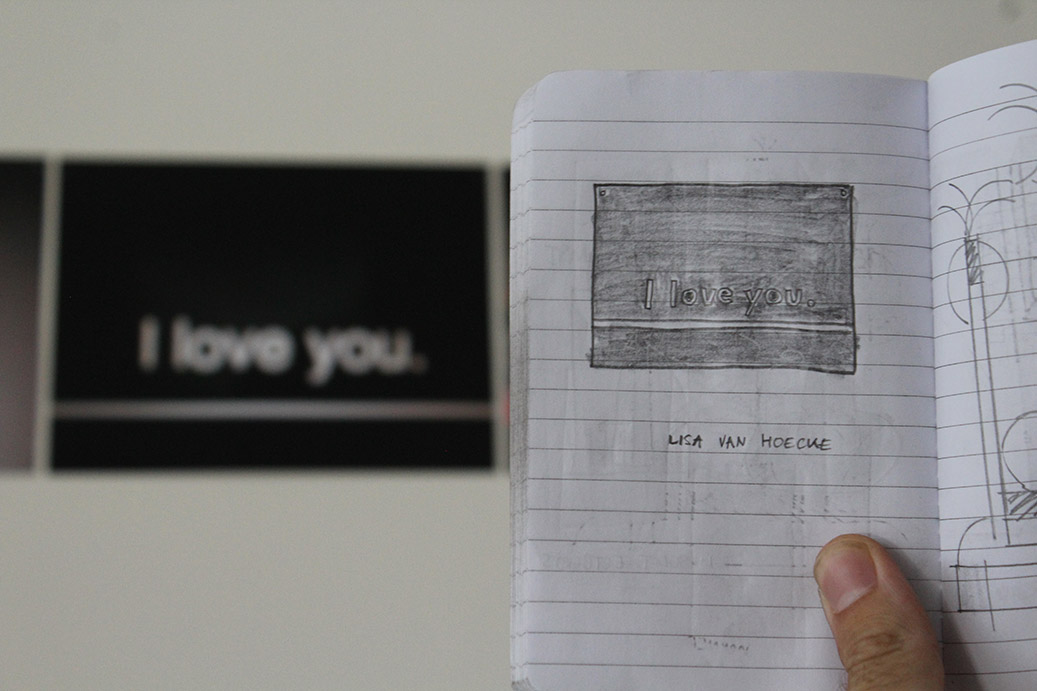 I love you.
I love you.
LISA VAN HOECKE